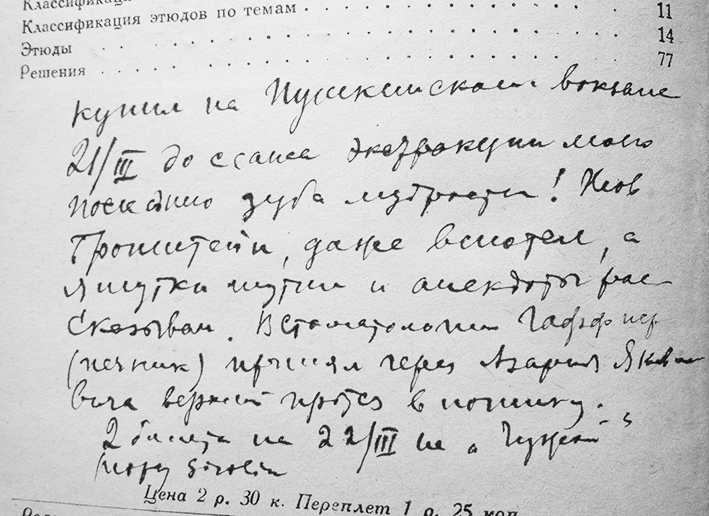 Классификация
Классификация этюдов по темам . . . . . . . . . . . 11
Этюды . . . . . . . . . . . . 14
Решения . . . . . . . . . . . 77
купил на Пушкинском вокзале
21/III до сеанса экстракции моего
последнего зуба мудрости!
Бронштейн, даже вспотел, а
я шутки шутил и анекдоты рас-
сказывал. В стоматологии
(печник) принял через Азария Яковле
вича верхний протез в починку.
2 билета на 22/III на „Чужой"
Цена 2 р. 30 к. Переплет 1 р. 25 коп.